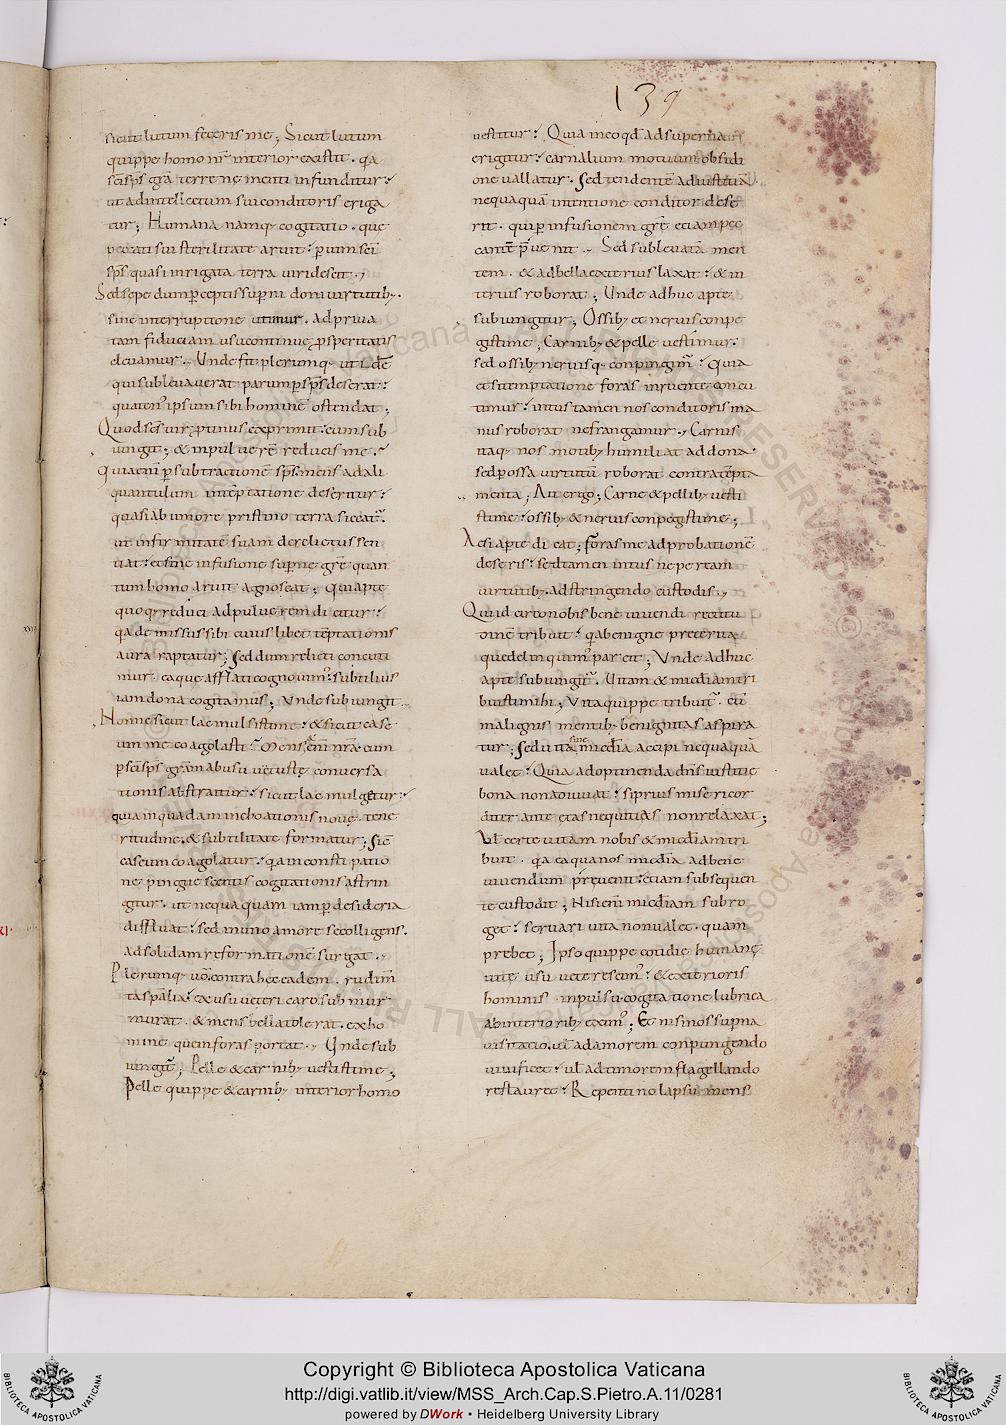 139
sicut lutum feceris me; Sicut lutum
quippe homo nr̄ interior existit. qa
sc̄i sp̄s gr̄a terrenę menti infunditur:
ut ad intellectum sui conditoris eriga
tur; Humana namq; cogitatio. que
peccati sui sterilitate aruit: p uim sc̄i
sp̄s quasi inrigata terra uiridescit.,
Sed sepe dum pceptis superni doni uirtutib;.
sine interruptione utimur. Ad priua
tam fiduciam usu continuę psperitatis
eleuamur. Unde fit plerumq; ut idē
qui subleuauerat parumper sp̄s deserat:
quaten; ipsum sibi hominē ostendat;
Quod sc̄s uir ptinus exprimit: cum sub
iungit; & in puluerē reduces me.
quia enī p subtractionē sp̄s mens ad ali
quantulum in tēptatione deseritur:
quasi ab umore pristino terra siccat̄.
ut infirmitatē suam derelictus sen
tiat: et sine infusione supne grē quan
tum homo aruit agnoscat; Qui apte
quoq; reduci ad puluerem dicitur:
qa demissus sibi cuius libet tēptationis
aura raptatur; Sed dum relicti concuti
mur. ea que afflati cognouim; subtilius
iam dona cogitamus; Unde subiungit
Nonne sicut lac mulsisti me: & sicut case
um me coagolasti. Mens enī nr̄a cum
p sc̄i sp̄s gr̄am ab usu uetustę conuersa
tionis abstraitur: sicut lac mulgetur:
quia in quadam inchoationis nouę tene
ritudine. & subtilitate formatur; Sic̄
caseum coagolatur: qa in consti patio
ne pinguescentis cogitationis astrin
gitur. ut nequaquam iam p desideria
diffluat: sed in uno amore se colligens.
ad solidam reformationē surgat.,
Plerumq; uō contra hęc eadem. rudim̄
ta sp̄alia: ex usu ueteri caro submur
murat. & mens bella tolerat. ex ho
mine quem foras portat., Unde sub
iungit̄; Pelle & carnib; uestisti me;
Pelle quippe & carnib; interior homo
uestitur: Quia in eo qd ad superna
erigitur: carnalium motuum obsidi
one uallatur. Sed tendentē ad iustitiā
nequaquā in temtatione conditor dese
rit. qui p infusionem grē etiam pec
cantē p̄uenit. Sed subleuatā men
tem. & ad bella exterius laxat: & in
terius roborat; Unde adhuc apte
subiungitur; Ossib; et neruis conpe
gisti me; Carnib; & pelle uestimur.
sed ossib; neruisq; conpingim̄: Quia
etsi temptatione foras inruente concu
timur: intus tamen nos conditoris ma
nus roborat ne frangamur., Carnis
itaq; nos motib; humiliat ad dona.
sed p ossa uirtutū roborat contra tēpta
menta; Ait ergo; Carne & pellib; uesti
sti me: ossib; & neruis conpegisti me;
Ac si apte dicat; foras me ad probationē
deseris: sed tamen intus ne peream
uirtutib;. adstringendo custodis.,
Quid circo nobis bene uiuendi rectitu
dinē tribuit: qa benigne preterita
que delinquim; parcit; Unde adhuc
apte subiungit̄. Uitam & miɖiam tri
buisti mihi; Uita quippe tribuit̄. cū
malignis mentib; benignitas aspira
tur; Sed uita sine miɖia accipi nequaquā
ualet: Quia ad optinenda dn̄s iustitię
bona non adiuuat: si prius misericor
diter ante actas nequitias non relaxat;
Ul certe uitam nobis & miɖiam tri
buit. qa ea qua nos miɖia ad bene
uiuendum preuenit: etiam subsequen
te custodit; Nisi enī miɖiam subro
get: seruari uita non ualet. quam
prebet; Ipso quippe cotidie humanę
uitę usu ueterescim;: & exterioris
hominis inpulsu cogitatione lubrica
ab interiorib; exim;; Et nisi nos supna
uisitatio. ul ad amorem conpungendo
uiuificet: ul ad timorem flagellando
restauret: Repentino lapsu mens
Copyright © Biblioteca Apostolica Vaticana
http://digi.vatlib.it/view/MSS_Arch.Cap.S.Pietro.A.11/0281
powered by DWork • Heidelberg University Library